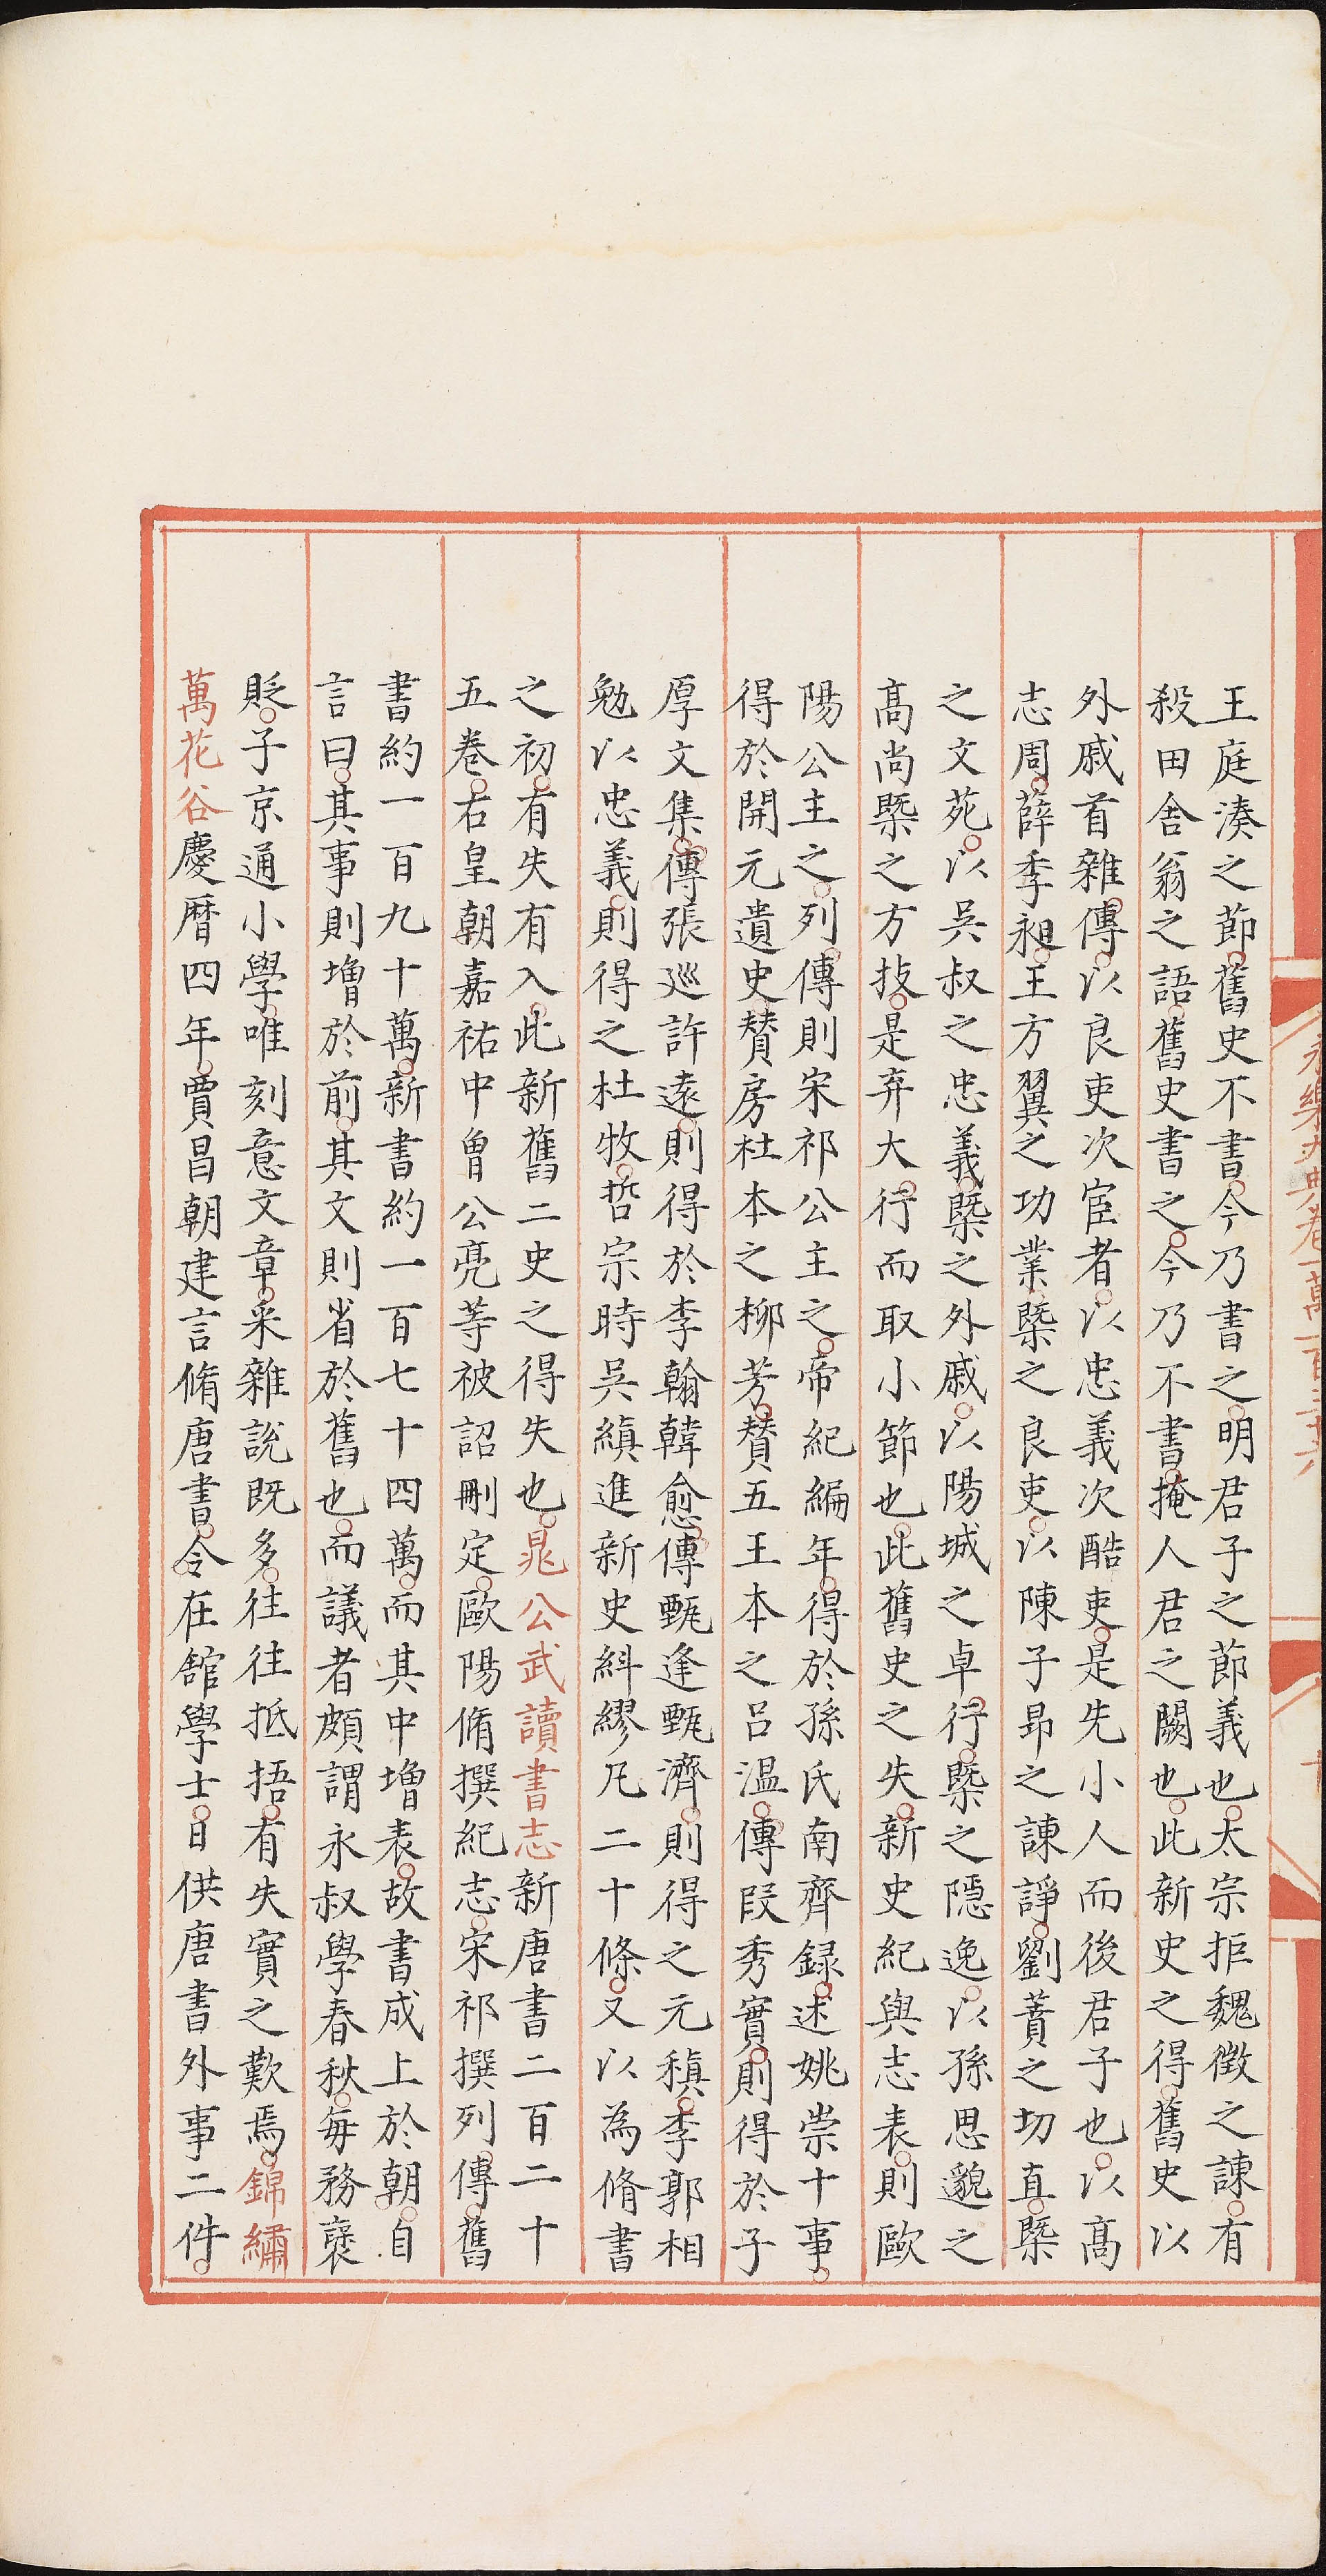 王庭湊之節舊史不書今乃書之明君子之節義也太宗拒魏徵之諫有
殺田舍翁之語舊史書之今乃不書掩人君之闕也此新史之得舊史以
外戚首雜傳以良吏次宦者以忠義次酷吏是先小人而後君子也以高
志周薛季昶王方翼之功業槩之良吏以陳子昻之諫諍劉蕡之切直槩
之文苑以吳叔之忠義槩之外戚以陽城之卓行槩之隱逸以孫思邈之
高尚槩之方技是弃大行而取小節也此舊史之失新史紀與志表則歐
陽公主之列傳則宋祁公主之帝紀編年得於孫氏南齊録述姚崇十事
得於開元遺史賛房杜本之柳芳賛五王本之呂溫傳叚秀實則得於子
厚文集傳張巡許遠則得於李翰韓愈傳甄逢甄濟則得之元稹李郭相
勉以忠義則得之杜牧哲宗時吳縝進新史糾繆凡二十條又以為脩書
之初有失有入此新舊二史之得失也晁公武讀書志新唐書二百二十
五卷右皇朝嘉祐中曾公亮等被詔刪定歐陽脩撰紀志宋祁撰列傳舊
書約一百九十萬新書約一百七十四萬而其中増表故書成上於朝自
言曰其事則増於前其文則省於舊也而議者頗謂永叔學春秋每務襃
貶子京通小學唯刻意文章采雜説既多往往抵捂有失實之歎焉錦繡
萬花谷慶曆四年賈昌朝建言脩唐書令在舘學士日供唐書外事二件